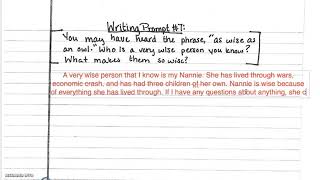 Writing Prompt #7:
You may have heard the phrase, "as wise as
an owl." Who is a very wise person you know?
What makes them so wise?
A very wise person that I know is my Nannie. She has lived through wars,
economic crash, and has had three children of her own. Nannie is wise because
of everything she has lived through. If I have any questions about anything, she c